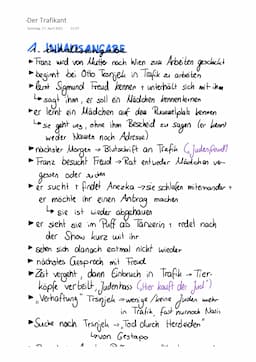 Der Trafikant
1. INHALTSANGABE
► Franz wird von Mutter nach Wien zum Arbeiten geschickt
► beginnt bei Otto Trsnjek in Trafik zu arbeiten
► lernt Sigmund Freud kennen + unterhält sich mit ihm
↳ sagt ihm, er soll ein Mädchen kennenlernen
► er lernt ein Mädchen auf dem Rummelplatz kennen
↳ sie geht weg, ohne ihm Bescheid zu sagen (er kennt
weder Namen noch Adresse)
► nächster Morgen → Blutschrift an Trafik („Judenfreund")
► Franz besucht Freud → Rat entweder Mädchen ver-
gessen oder suchen
► er sucht + findet Anezka → sie schlafen miteinander +
er möchte ihr einen Antrag machen
↳ sie ist wieder abgehauen
► er sieht sie im Puff als Tänzerin + redet nach
der Show kurz mit ihr
► sehen sich danach erstmal nicht wieder
► nächstes Gespräch mit Freud
► Zeit vergeht, dann Einbruch in Trafik → Tier-
köpfe verteilt, Judenhass („Hier kauft der Jud")
► „Verhaftung" Trsnjek → wenige/keine Juden mehr
in Trafik, fast nur noch Nazis
► Suche nach Trsnjek → „Tod durch Herzleiden"
↳ von Gestapo